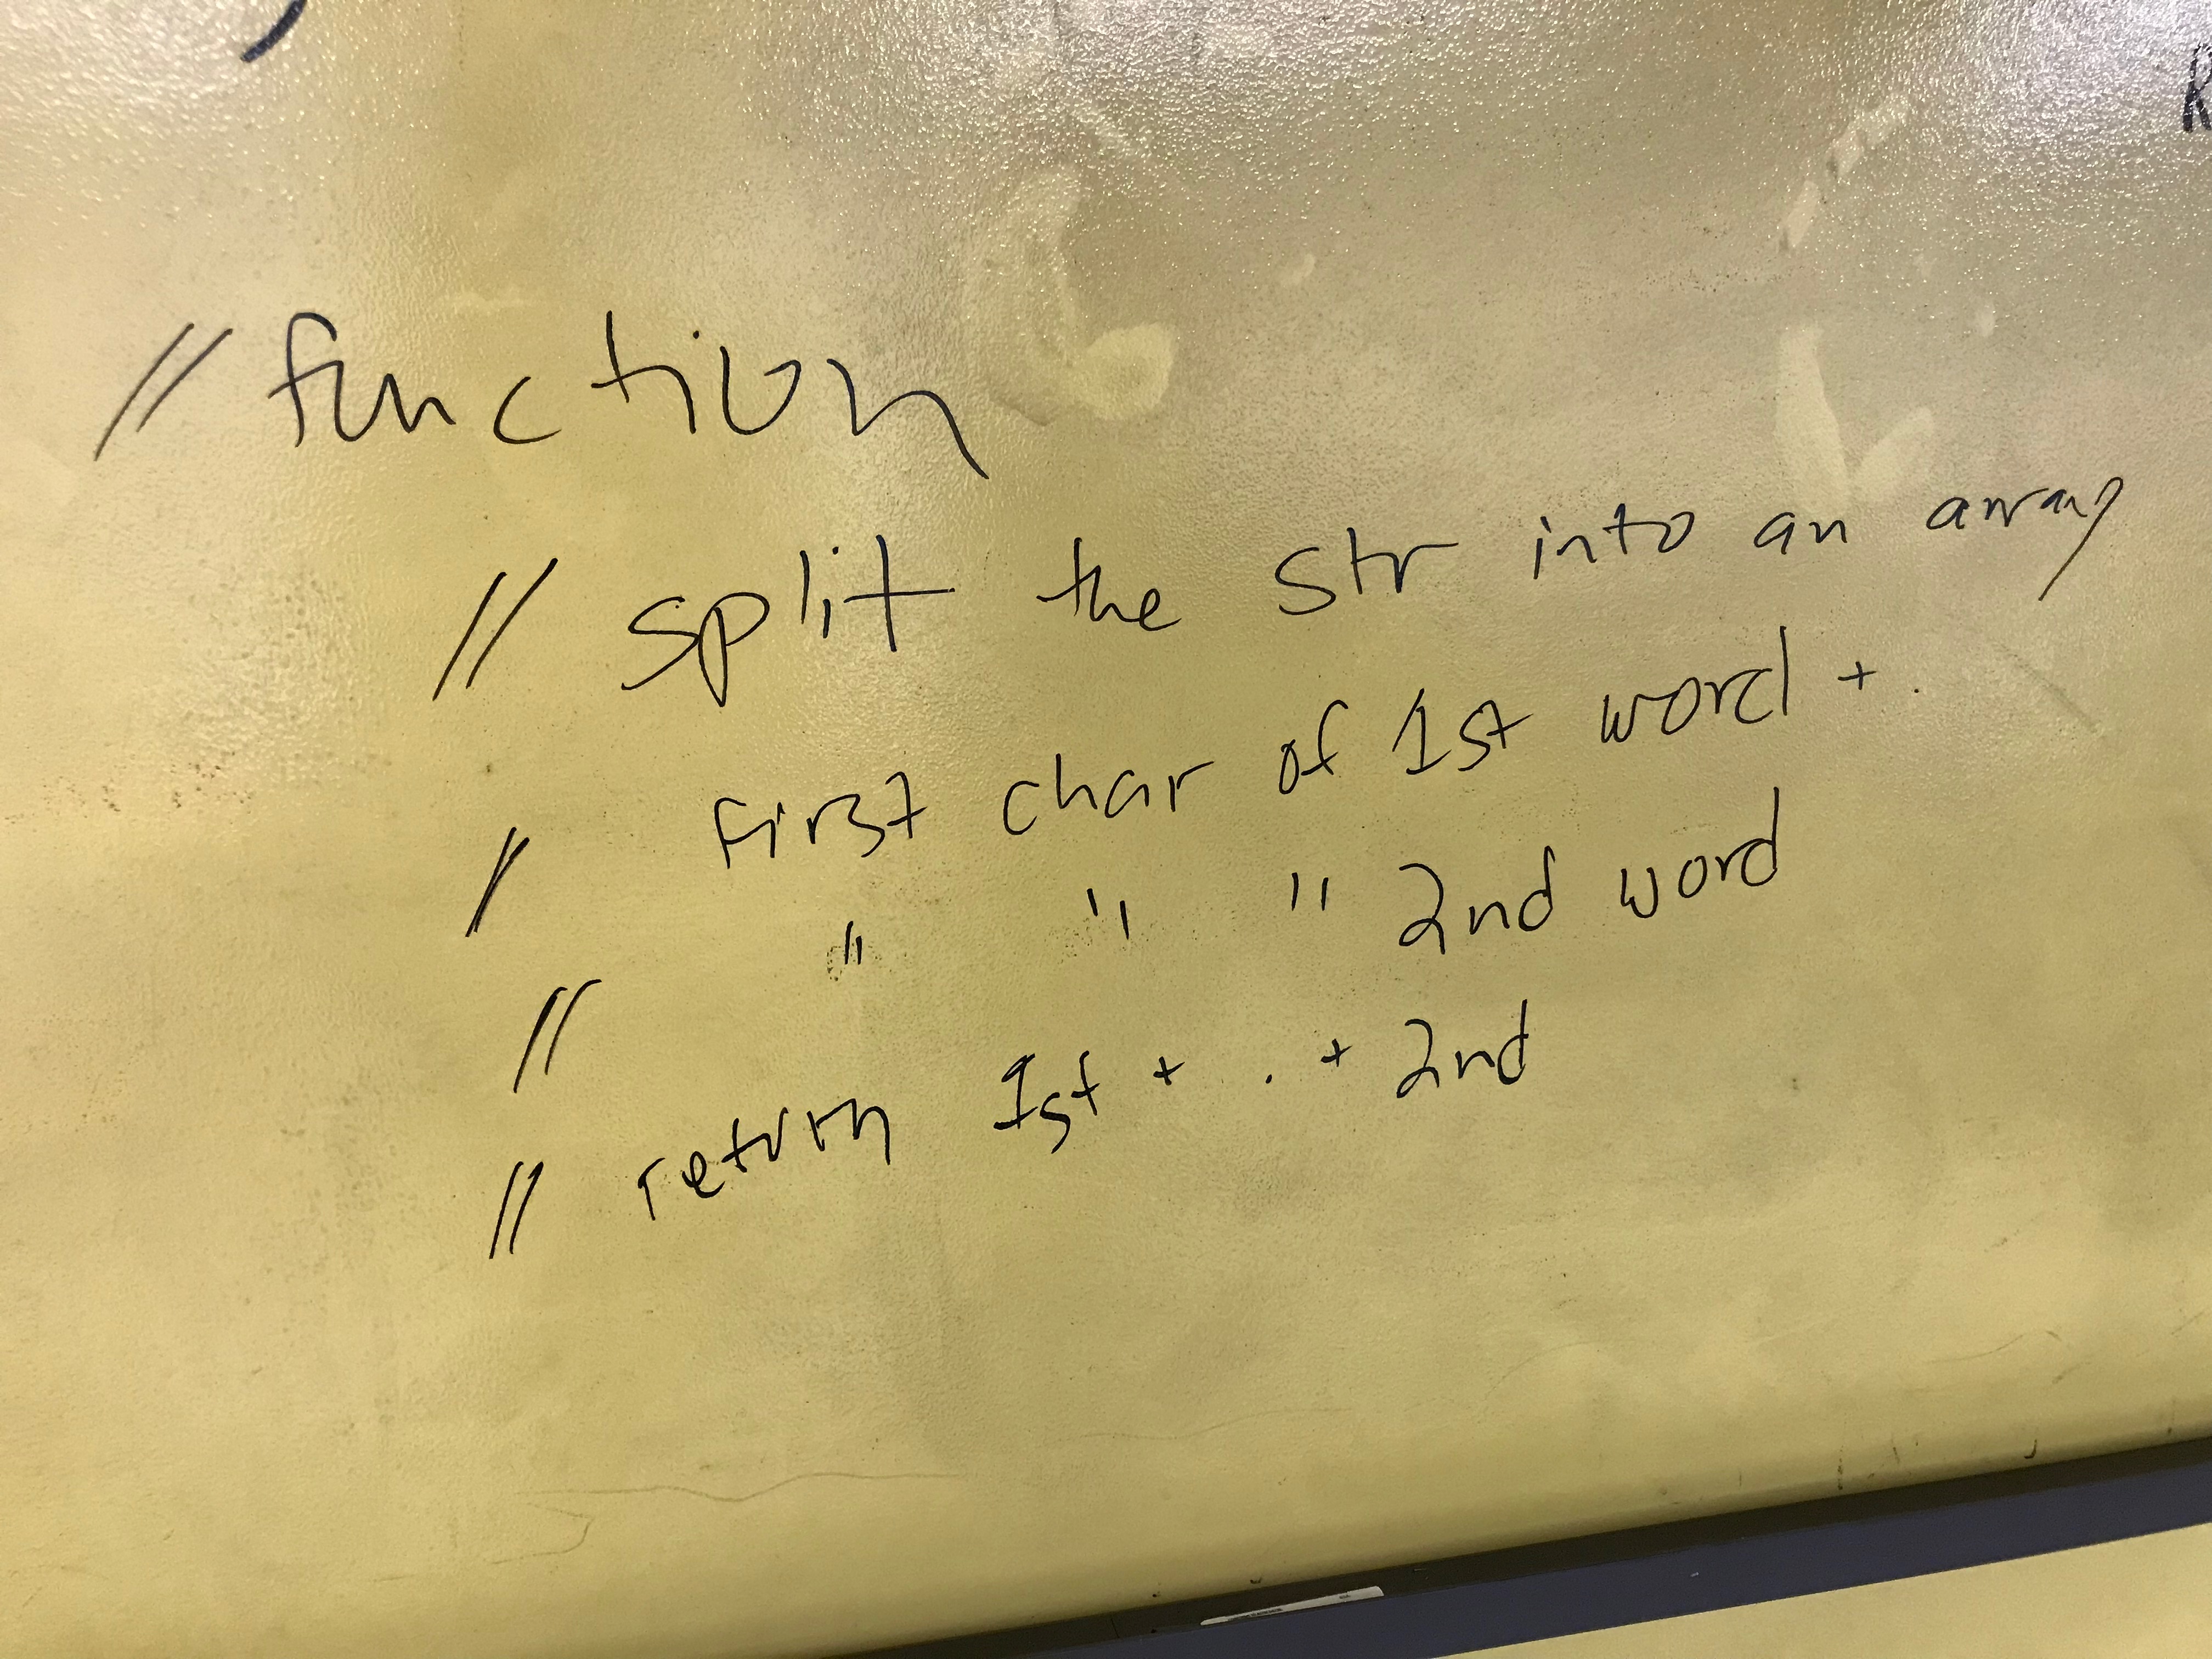 R
// function
// split the str into an array
// first char of 1st word + .
// " " " 2nd word
// return 1st + . + 2nd